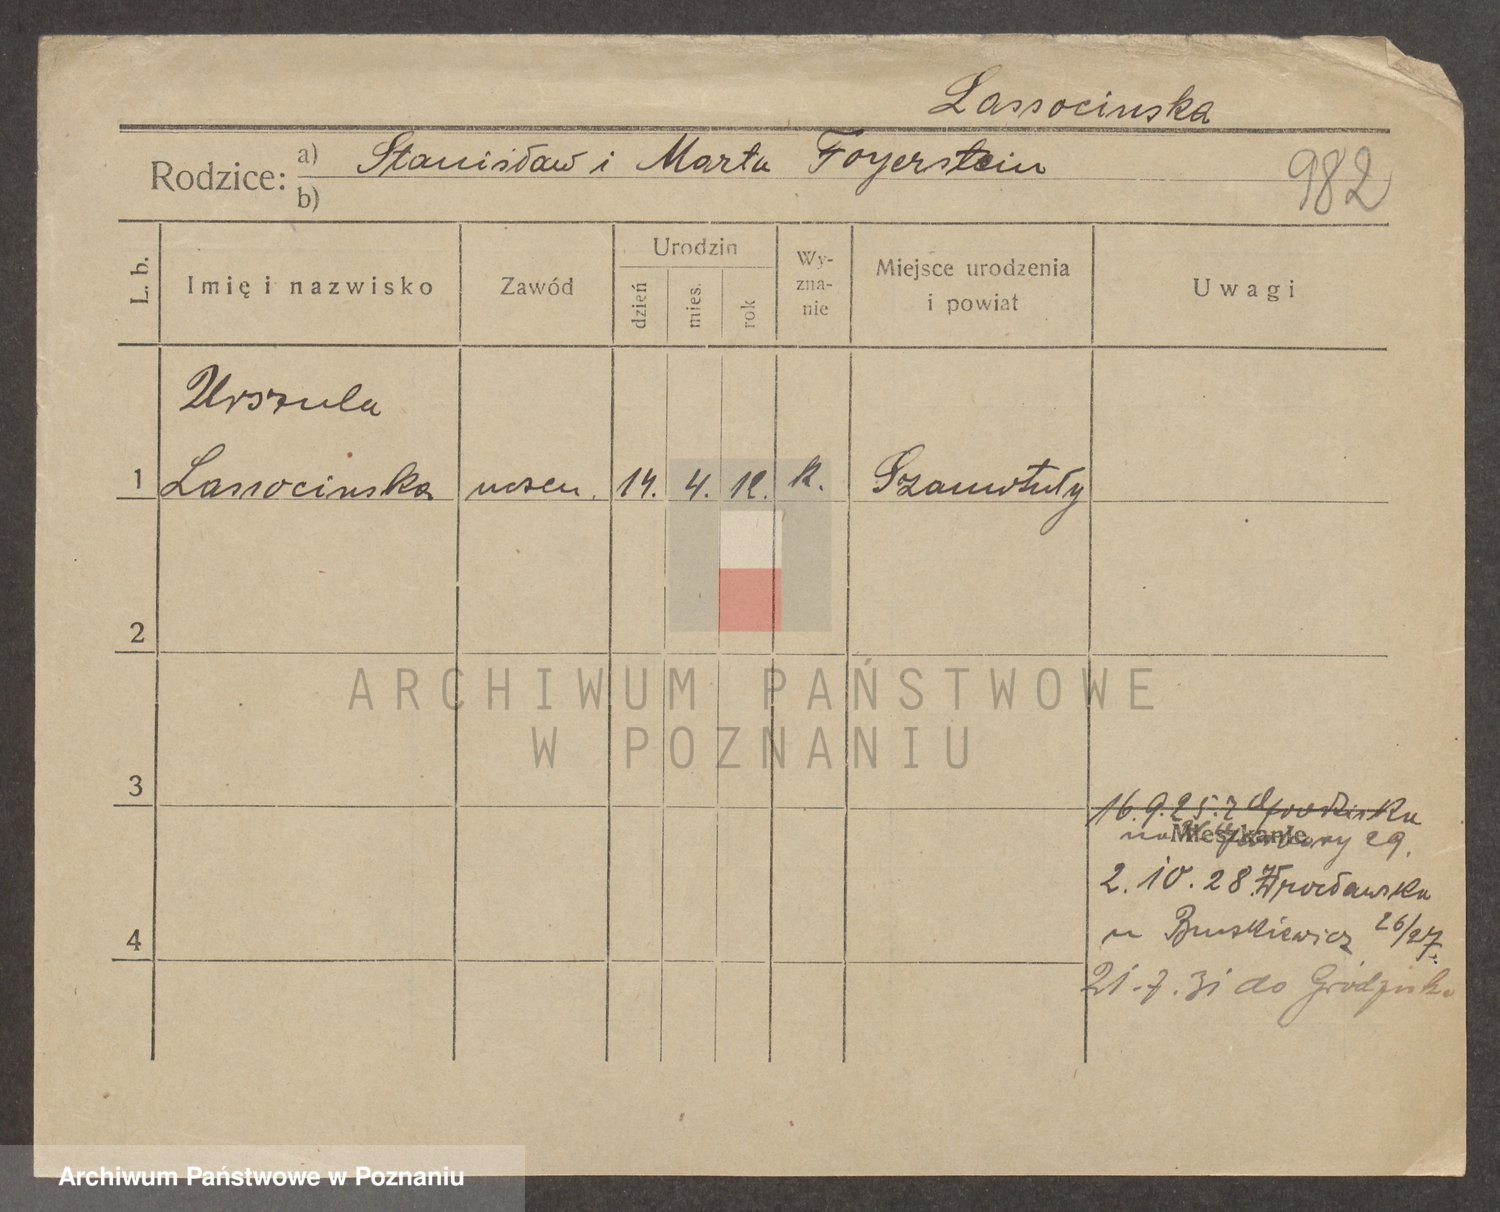 Lassocinska
Rodzice:
a) Stanisław i Marta Foyerstein
b)
982
L. b.
Imię i nazwisko
Zawód
Urodzin
dzień
mies.
rok
Wy-
zna-
nie
Miejsce urodzenia
i powiat
Uwagi
Urszula
1 Lassocinska uczen. 14. 4. 12. k. Szamotuły
2
ARCHIWUM PAŃSTWOWE
W POZNANIU
3
16.9.25. z Grodziska
Mieszkanie
29.
2.10.28 Wrocławska
u Bruskiewicz 26/27.
4
21.7.31 do Grodziska
Archiwum Państwowe w Poznaniu